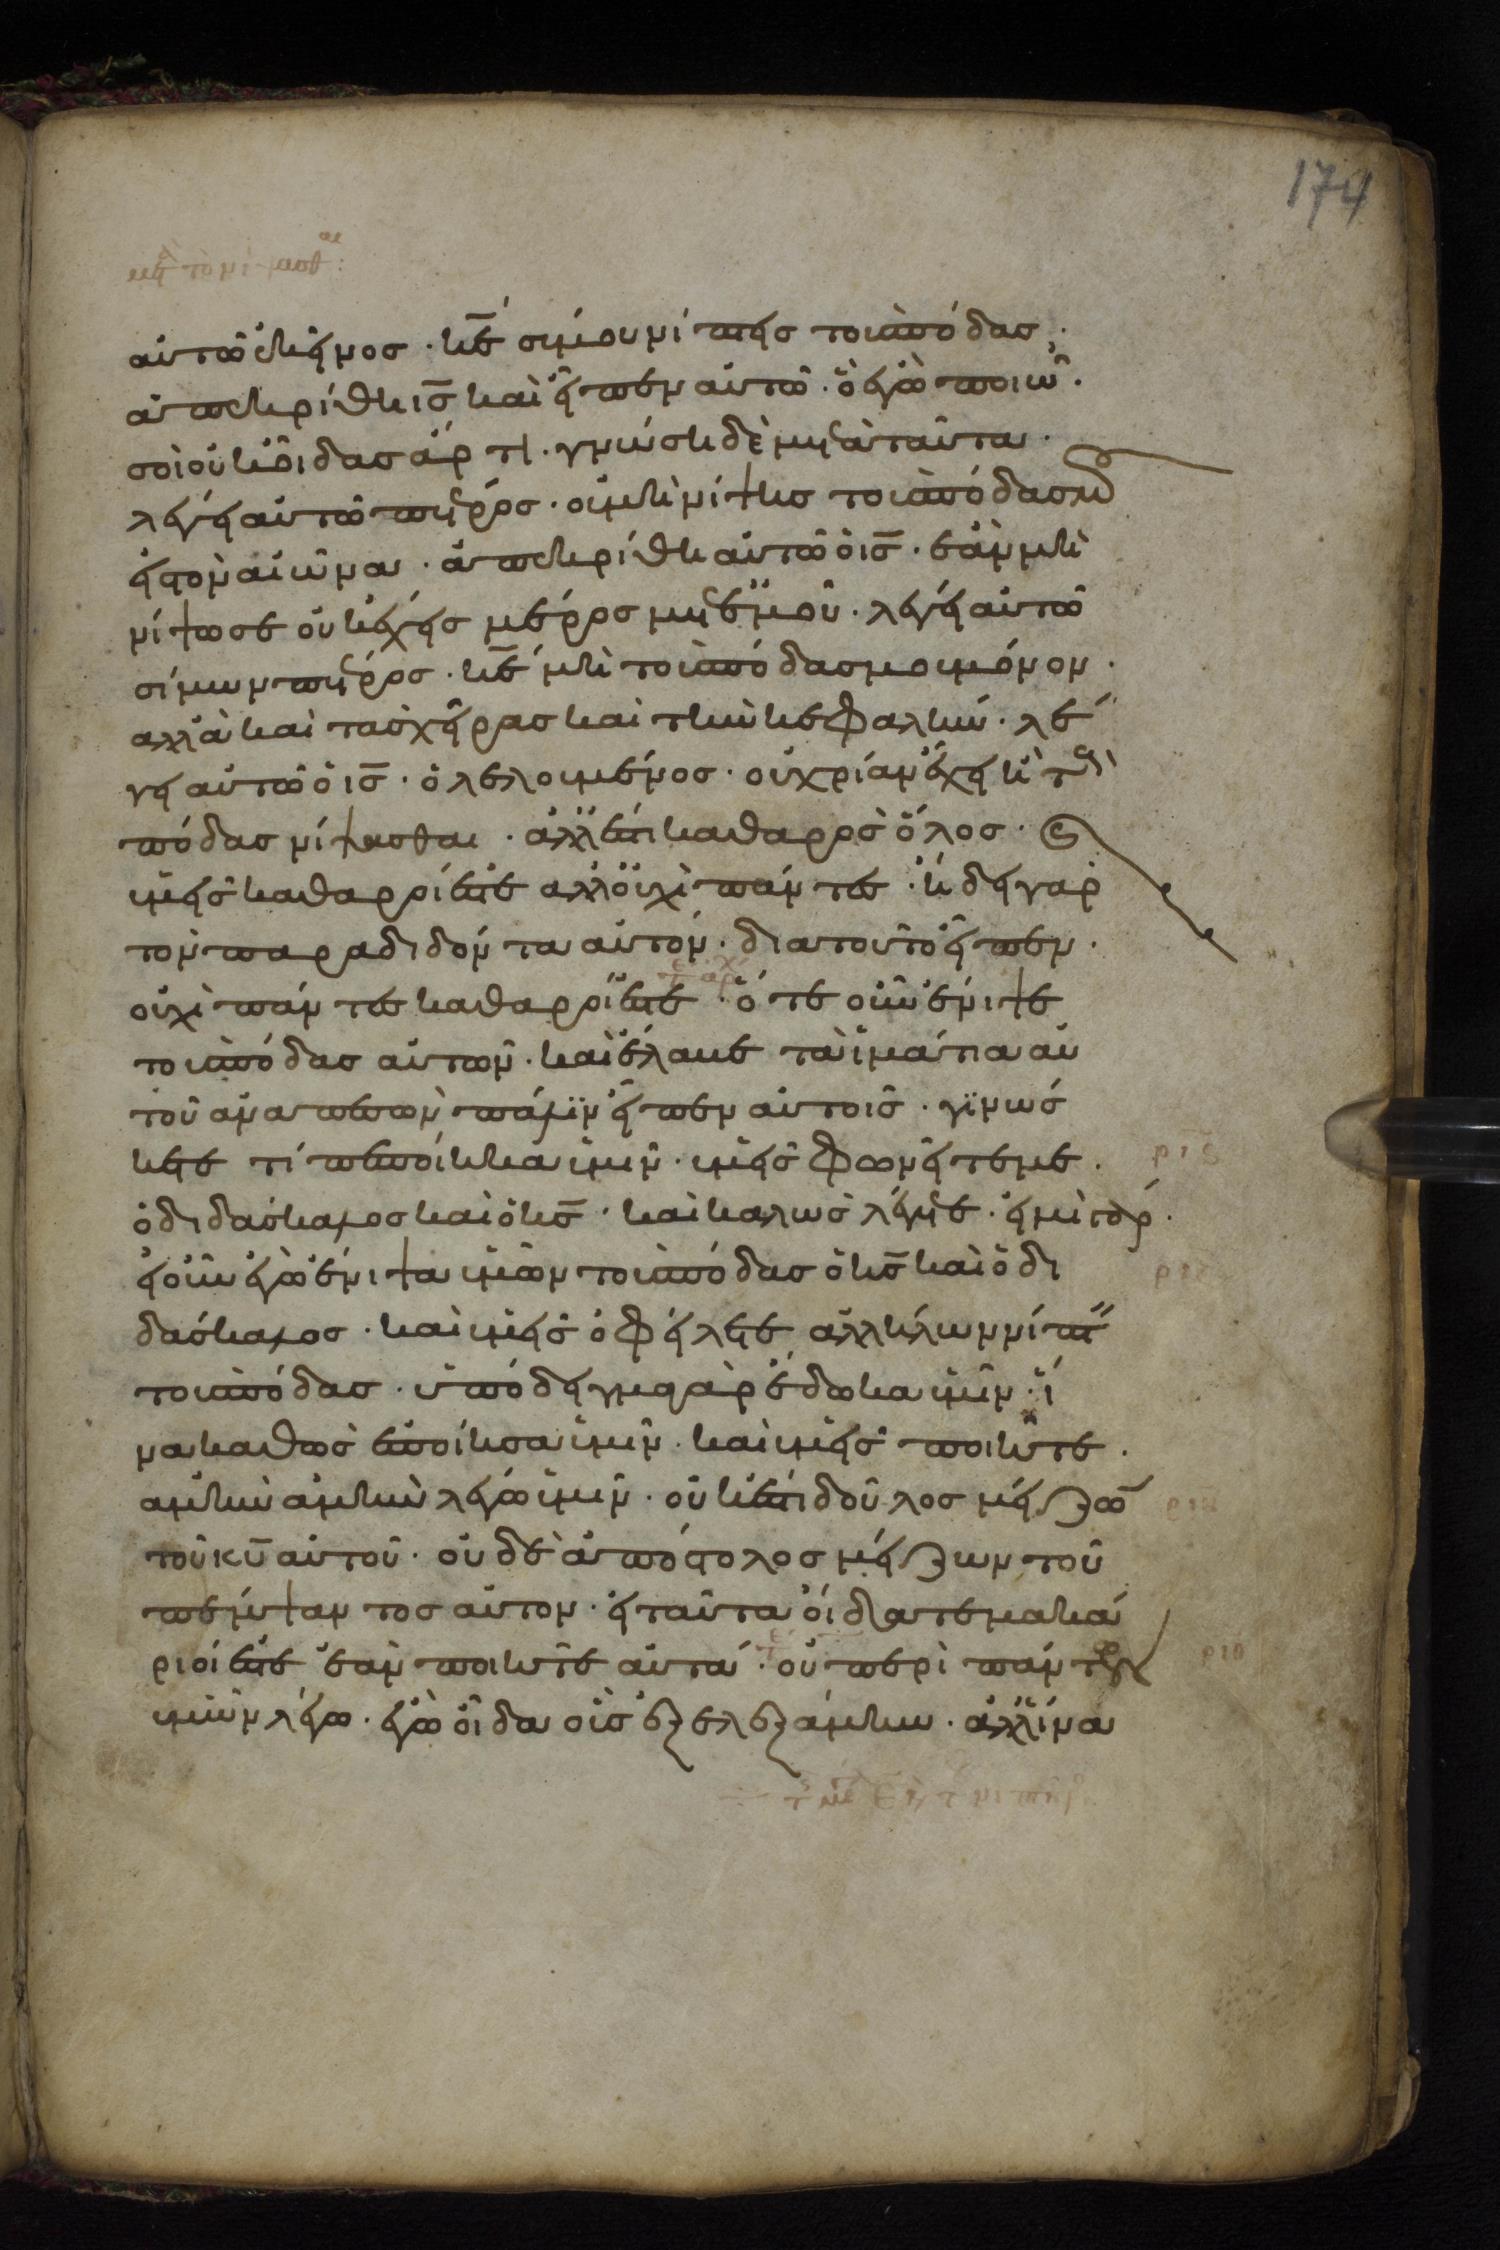 174
αὐτῶ ἐκεῖνος · κε̅ σύ μου νίπτεις τοὺς πόδας ;
ἀπεκρίθη ις̅ καὶ εἶπεν αὐτῶ · ὃ ἐγὼ ποιῶ ·
σὺ οὐκ οἶδας ἄρτι · γνώση δὲ μετὰ ταῦτα ·
λέγει αὐτῶ πέτρος · οὐ μὴ νίψης τοὺς πόδας μου
εἰς τὸν αἰῶνα · ἀπεκρίθη αὐτῶ ὁ ις̅ · ἐὰν μὴ
νίψω σε οὐκ ἔχεις μέρος μετ' ἐμοῦ · λέγει αὐτῶ
σίμων πέτρος · κε̅ μὴ τοὺς πόδας μου μόνον ·
ἀλλὰ καὶ τὰς χεῖρας καὶ τὴν κεφαλήν · λέ
γει αὐτῶ ὁ ις̅ · ὁ λελουμένος · οὐ χρίαν ἔχει ἢ τοὺς
πόδας νίψασθαι · ἀλλ' ἔστι καθαρὸς ὅλος ·
ὑμεῖς καθαροί ἐστε ἀλλ' οὐχὶ πάντες · ἤδει γὰρ
τὸν παραδιδόντα αὐτόν · διατοῦτο εἶπεν ·
οὐχὶ πάντες καθαροί ἐστε · ὅτε οὖν ἔνιψε
τοὺς πόδας αὐτῶν · καὶ ἔλαβε τὰ ἱμάτια αὐ
τοῦ ἀναπεσὼν πάλϊν εἶπεν αὐτοῖς · γϊνώσ
κετε τί πεποίηκα ὑμῖν · ὑμεῖς φωνεῖτέ με ·
ριϛ
ὁ διδάσκαλος καὶ ὁ κς̅ · καὶ καλῶς λέγετε · εἰμὶ γάρ ·
εἰ οὖν ἐγὼ ἔνιψα ὑμῶν τοὺς πόδας ὁ κς̅ καὶ ὁ δι
δάσκαλος · καὶ ὑμεῖς ὀφείλετε ἀλλήλων νίπτειν
τοὺς πόδας · ὑπόδειγμα γὰρ ἔδωκα ὑμῖν · ἵ
να καθὼς ἐποίησα ὑμῖν · καὶ ὑμεῖς ποιῆτε ·
ἀμὴν ἀμὴν λέγω ὑμῖν · οὐκ ἔστι δοῦλος μείζω̅
ριη
τοῦ κυ̅ αὐτοῦ · οὐδὲ ἀπόστολος μείζων τοῦ
πέμψαντος αὐτόν · εἰ ταῦτα οἴδατε μακά
ριοί ἐστε ἐὰν ποιῆτε αὐτά · οὐ περὶ πάντων
ριθ
ὑμῶν λέγω · ἐγὼ οἶδα οὓς ἐξελεξάμην · ἀλλ' ἵνα